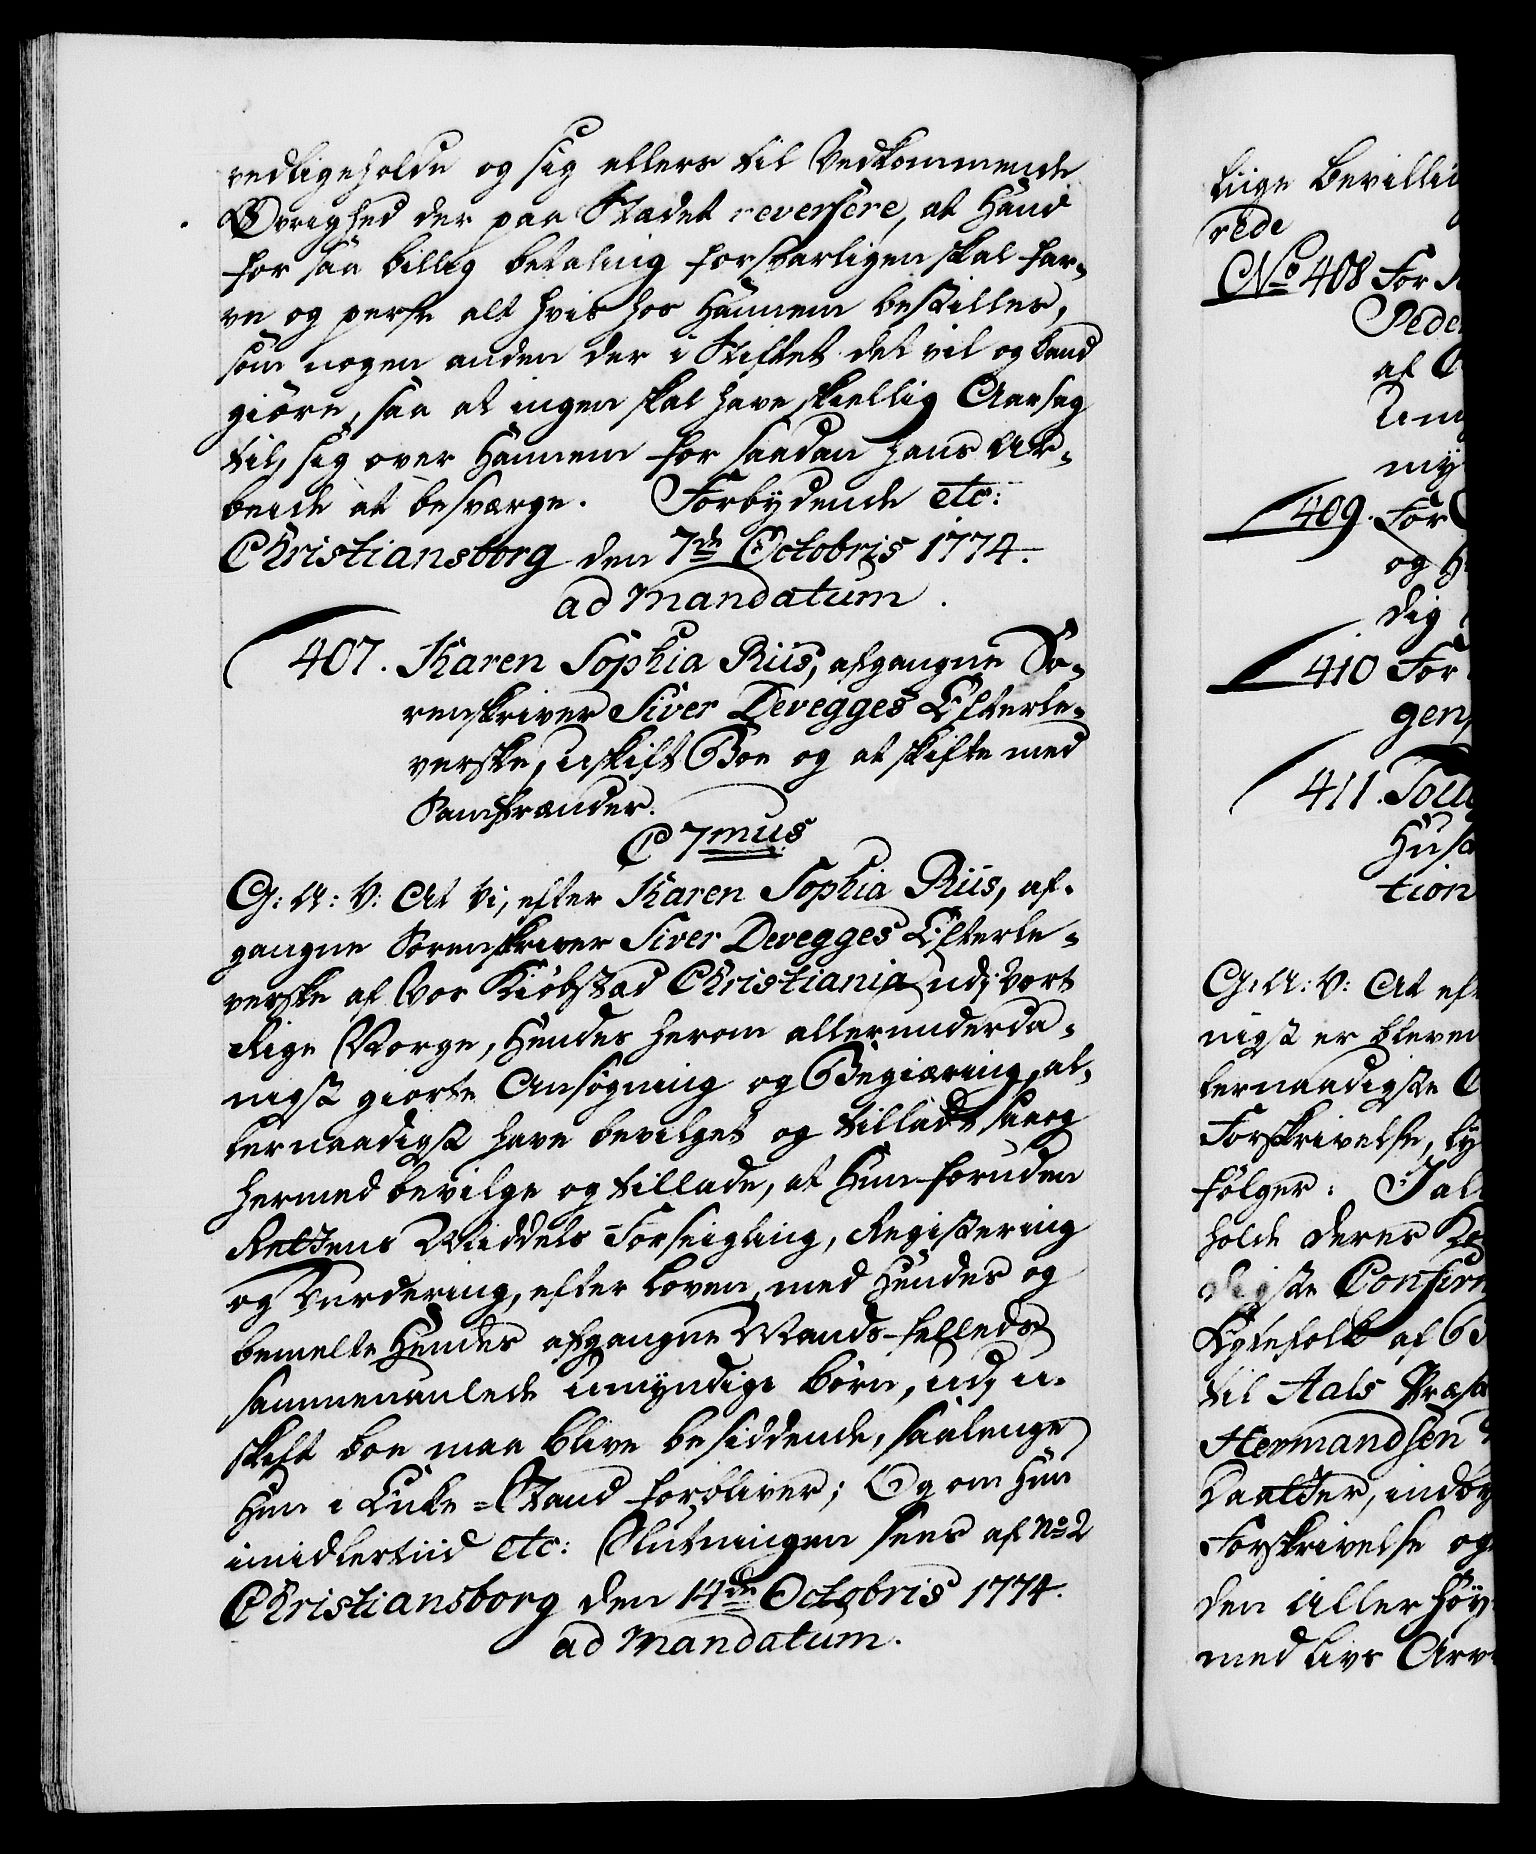 vedligeholde og sig ellers til Vedkommende
Øvrighed der paa Stædet reversere, at Hand
for saa billig betaling forsvarligen skal far-
ve og perse alt hvis hos Hannem bestilles,
som nogen anden der i Stiftet det vil og kand
giøre, saa at ingen skal have skiellig Aarsag
til, sig over Hannem for saadan hans Ar-
beide at besværge. Forbydende etc:
Christiansborg den 7de Octobris 1774.
ad mandatum.
407. Karen Sophia Riis, afgangne So-
renskriver Siver Devegges Efterle-
verske, uskift Boe og at skifte med
Samfrænder.
C 7mus
G: A: V: At Vi, efter Karen Sophia Riis, af-
gangne Sorenskriver Siver Devegges Efterle-
verske af Vor Kiøbstad Christiania udi Vort
Rige Norge, Hendes herom allerunderda-
nigst giorte Ansøgning og Begiæring, al-
lernaadigst have bevilget og tilladt, saa og
hermed bevilge og tillade, at Hun foruden
Rettens Middels Forseigling, Registering
og Vurdering, efter Loven, med Hendes og
bemelte Hendes afgangne Mands felleds
sammenavlede umyndige Børn, udi u-
skift Boe maa blive besiddende, saalenge
Hun i Enke-Stand forbliver; Og om Hun
imidlertiid etc: Slutningen sees af No 2
Christiansborg den 14de Octobris 1774.
ad mandatum.
liige Bevilli
rede
No 408 For
Pede
af
Um
my
409. For
og H
dig
410 For
gen
411. Told
Husa
tion
G: A: V: At eft
nigst er bleven
lernaadigste
Forskrivelse, ly
følger: Jal
holde deres
digste Confirm
Egtefolk af
til Aals Præst
Hermandsen
Daatter, indby
Forskrivelse og
den Allerhøy
med livs Arv